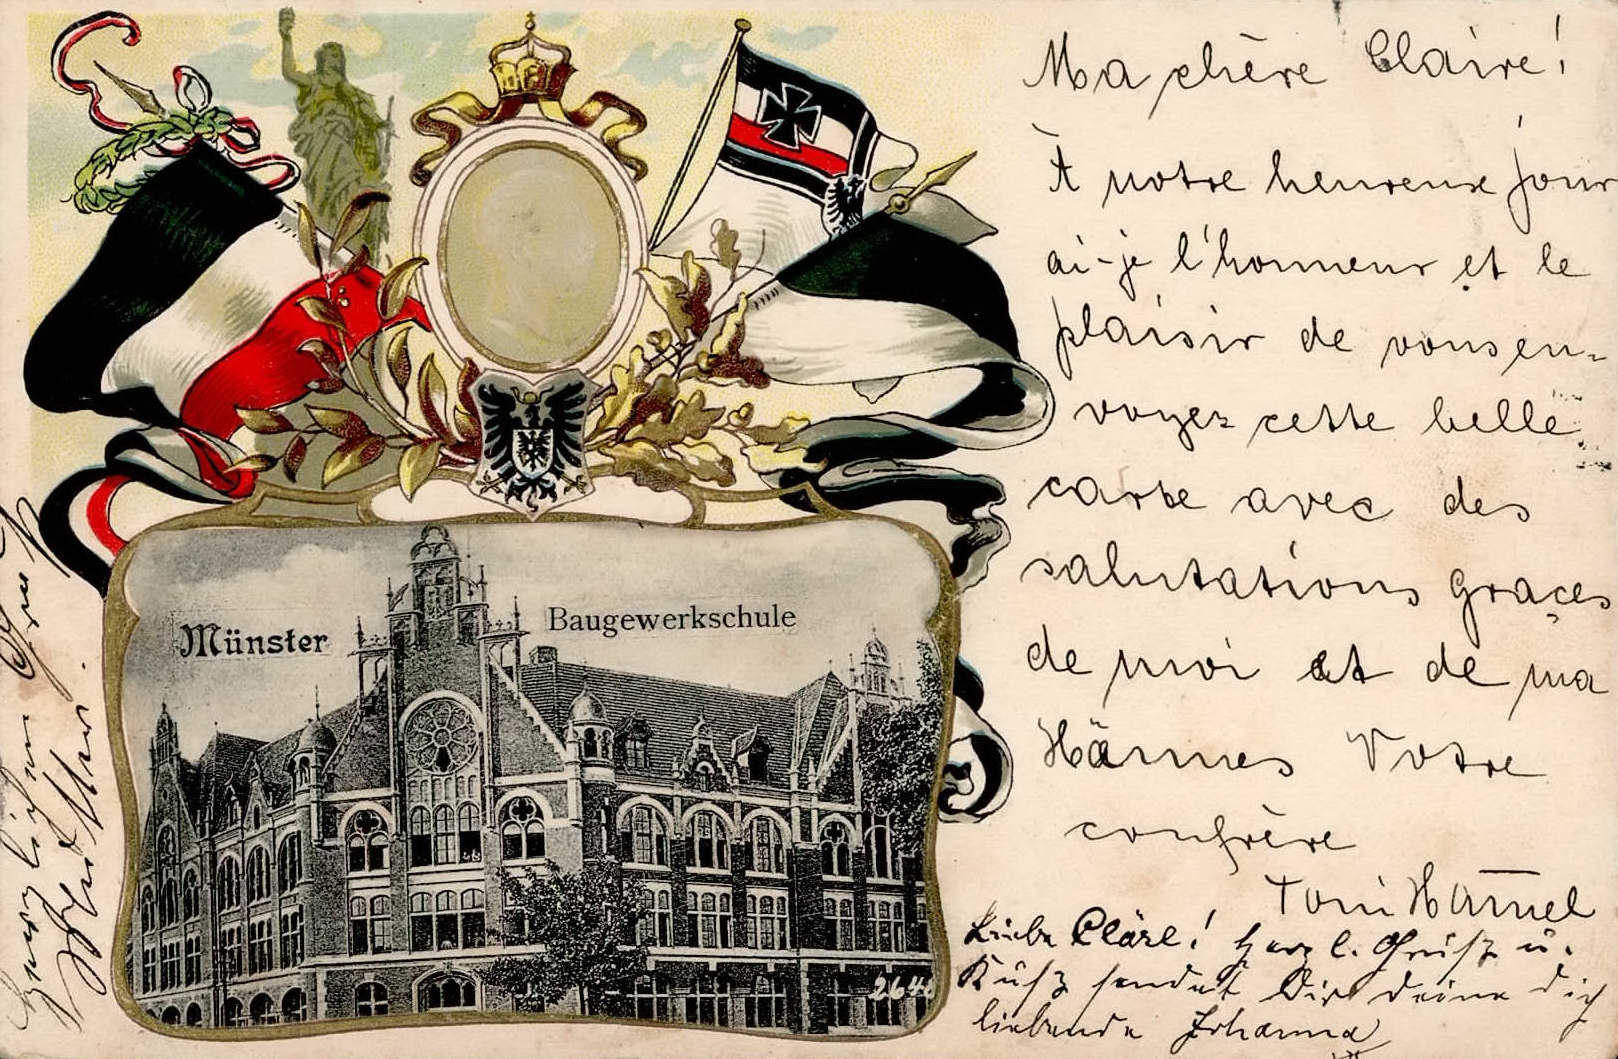 Münster
Baugewerkschule
2648
Ma chère Claire!
À notre heureux jour
ai-je l'honneur et le
plaisir de vous en-
voyer cette belle
carte avec des
salutations Graçes
de moi et de ma
Hännes Votre
confrère
Toni Hamel
Liebe Cläre! Herzl. Gruß u.
Kuß sendet Dir deine dich
liebende Johanna
Herzlichen Gruß
sendet